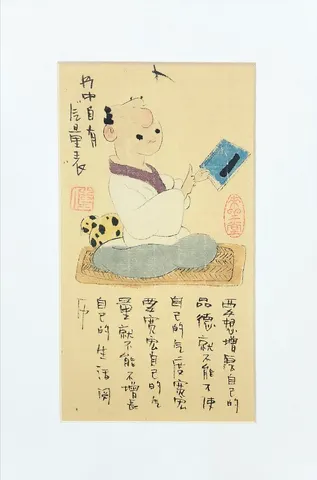 书中自有
量
要想增厚自己的
品德就不能不使
自己的气度宽宏
要宽宏自己的气
量就不能不增长
自己的生活阅
历